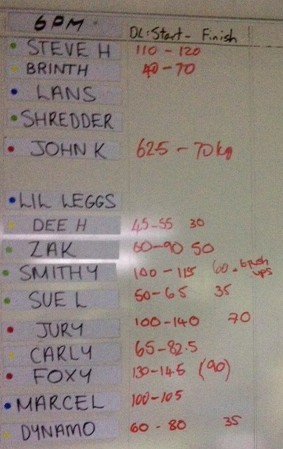 6PM DL: Start - Finish
STEVE H 110 - 120
BRINTH 40 - 70
LANS
SHREDDER
JOHN K 62.5 - 70kg
LIL LEGGS
DEE H 45-55 30
ZAK 60-90 50
SMITHY 100 - 115 60.
ups
SUE L 50-65 35
JURY 100-140 70
CARLY 65-82.5
FOXY 130-145 (90)
MARCEL 100-105
DYNAMO 60 - 80 35